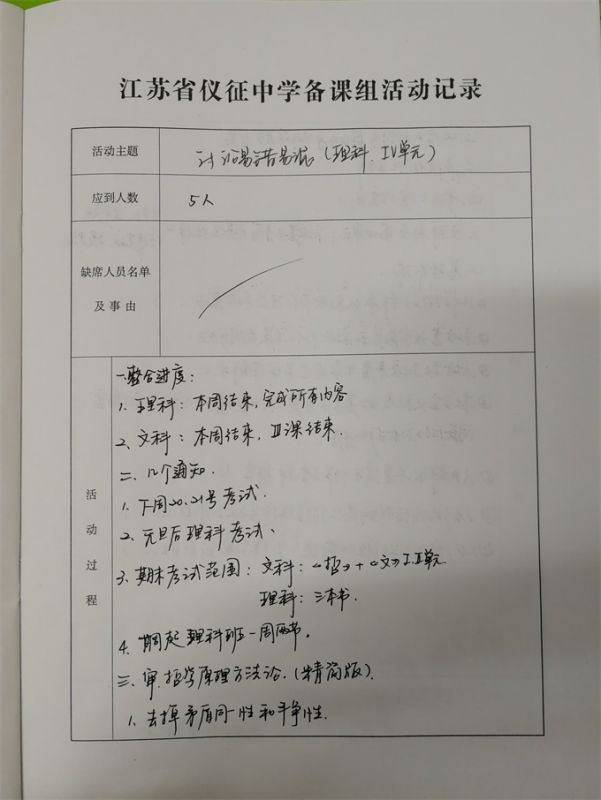 江苏省仪征中学备课组活动记录
活动主题
讨论易错易混（理科.IV单元）
应到人数
5人
缺席人员名单
及事由
活动过程
一.整合进度：
1. 理科：本周结束,完成所有内容
2、文科：本周结束，Ⅲ课结束.
二、几个通知.
1. 下周20.21号考试.
2. 元旦后理科考试、
3. 期末考试范围：文科：《哲》+《文》I.Ⅱ单元
理科：三本书.
4. 理科班一周两节。
三、审.哲学原理方法论.(精简版).
1. 去掉矛盾同一性和斗争性.